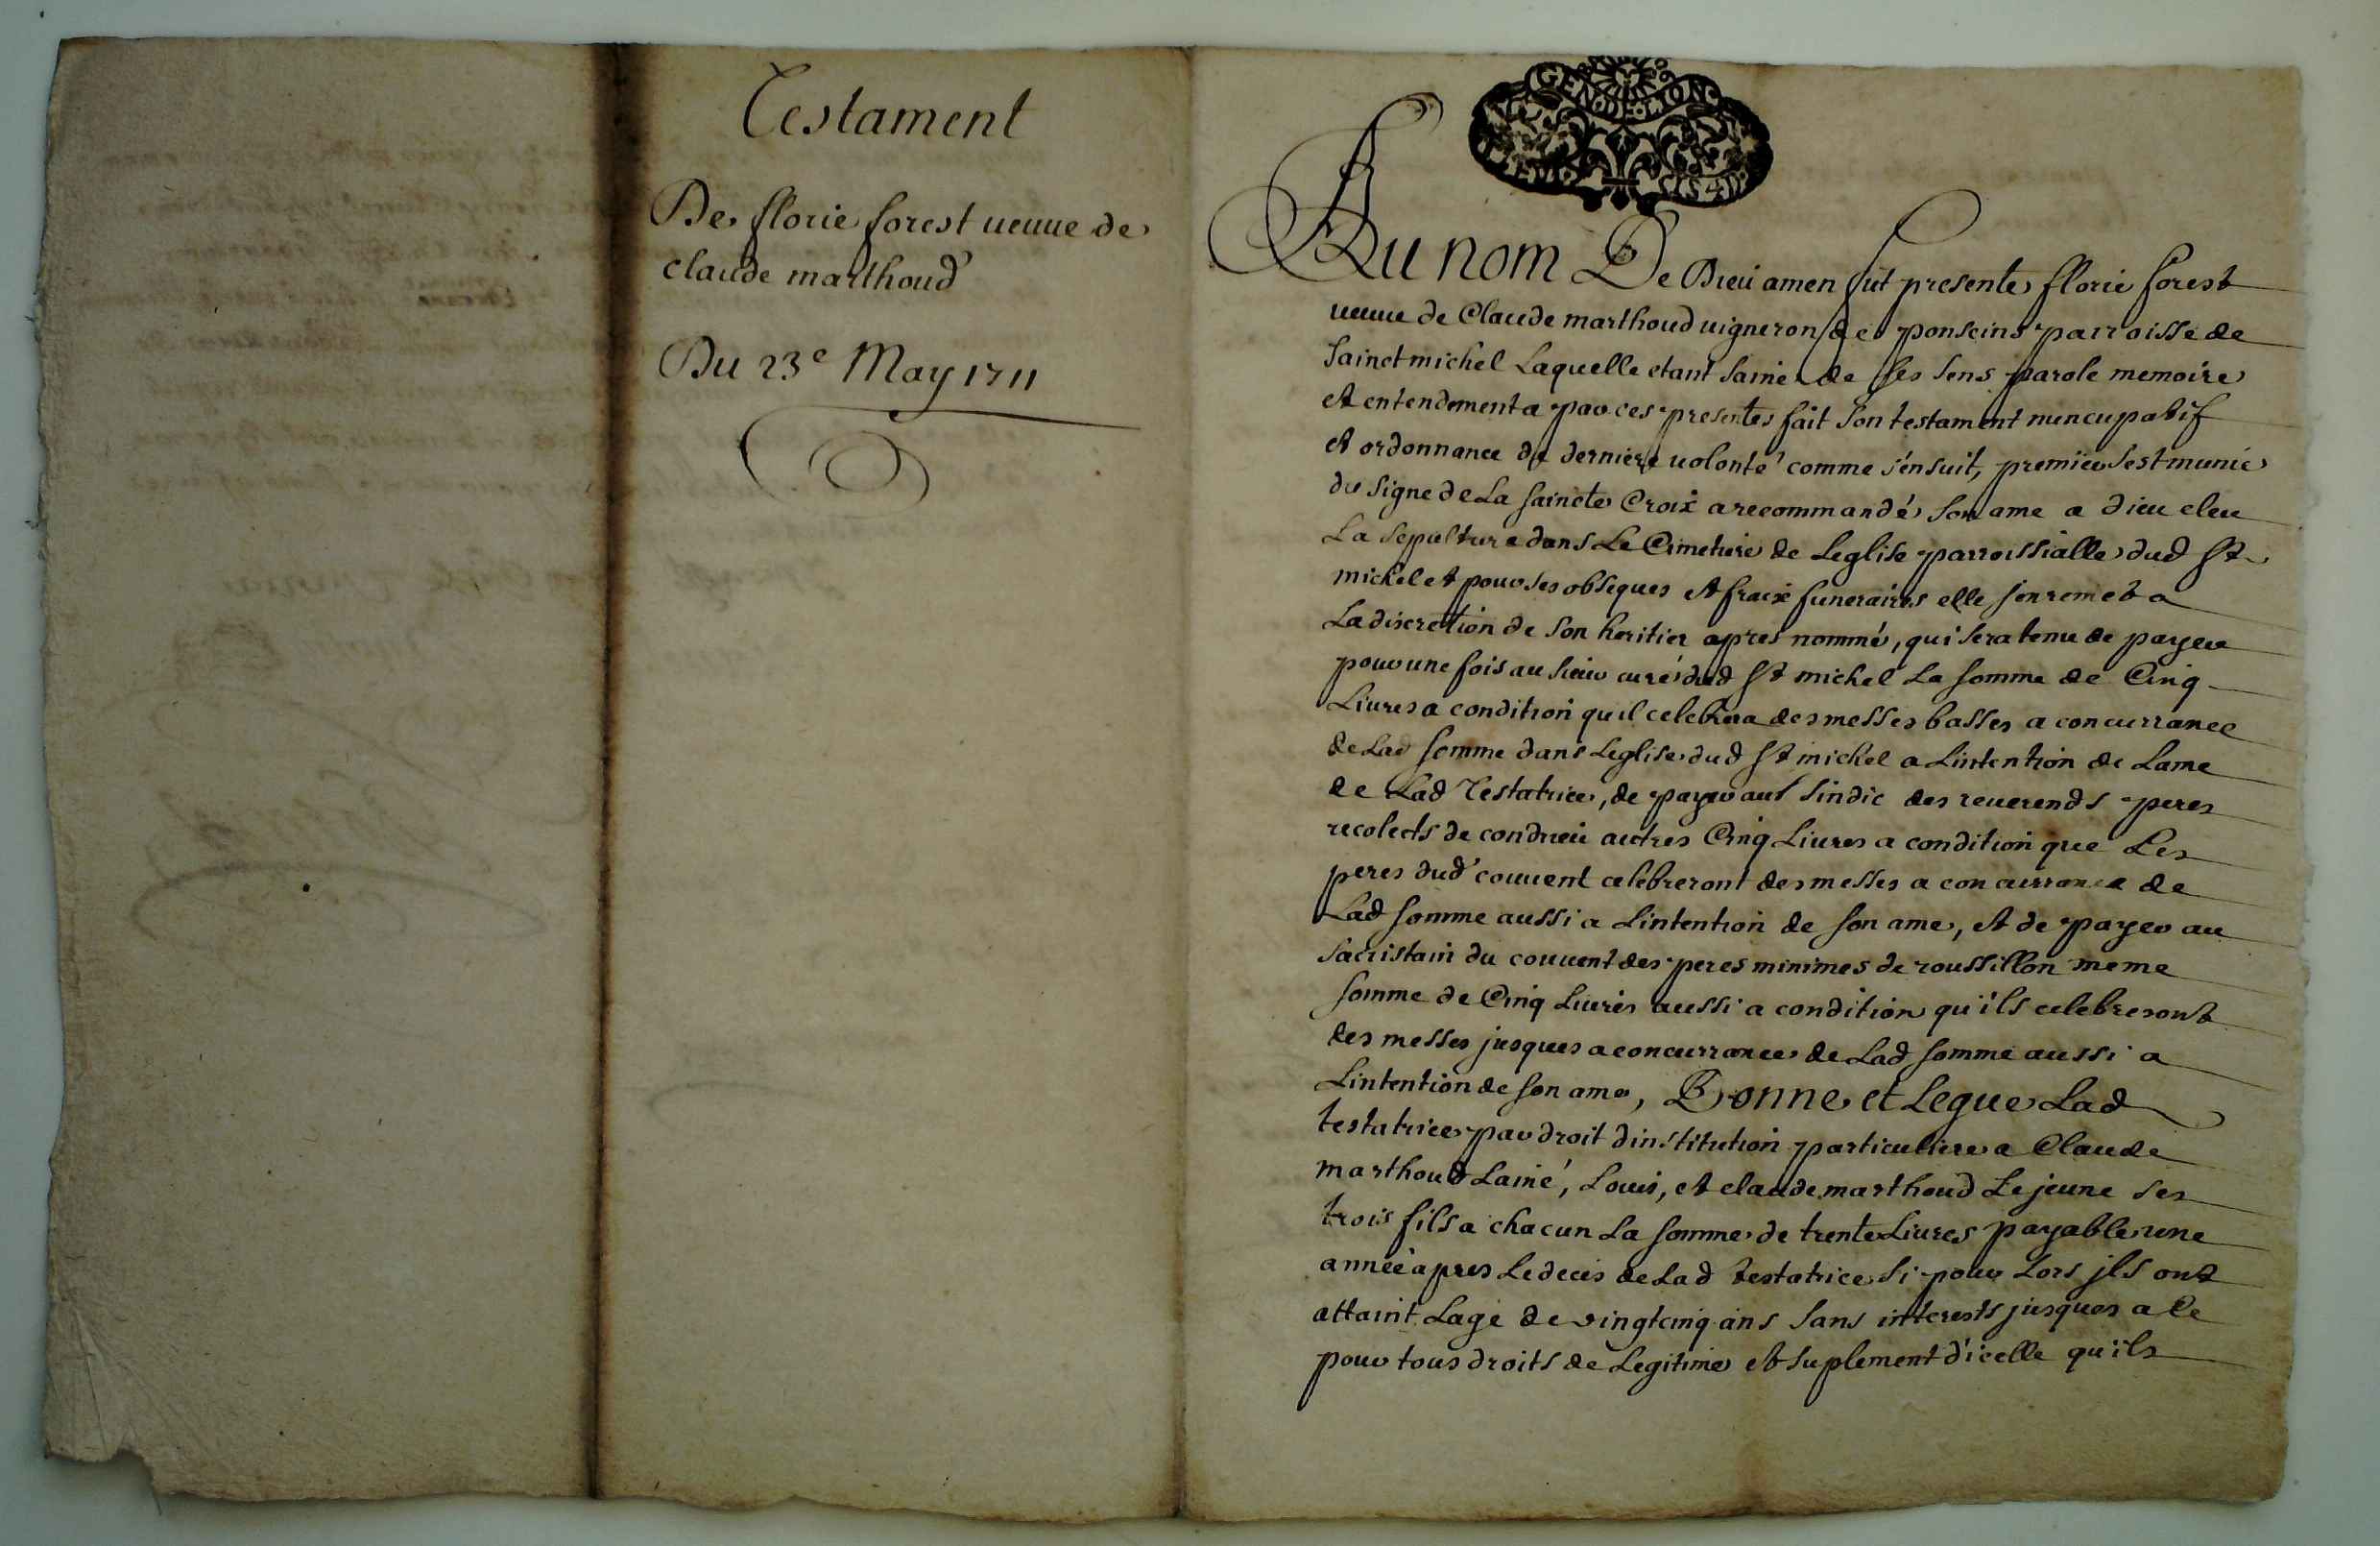 Testament
De florie forest ueuue de
claude marthoud
Du 23e May 1711
GEN DE LION
Au nom De Dieu amen fut presente florie forest
ueuue de Claude marthoud uigneron de ponseins parroisse de
sainct michel Laquelle etant saine de ses sens parole memoire
et entendement a par ces presentes fait son testament nuncupatif
et ordonnance de derniere uolonté comme s'ensuit, premier s'est munie
du signe de La saincte Croix a recommandé son ame a dieu eleu
La sepulture dans Le Cimetiere de Leglise parroissialle dud St
michel et pour ses obseques et fraix funeraires elle s'en remet a
La discretion de son heritier apres nommé, qui sera tenu de payer
pour une fois au sieur curé dud St michel La somme de Cinq
Liures a condition quil celebrera des messes basses a concurrance
de Lad somme dans Leglise dud St michel a Lintention de Lame
de Lad Testatrice, de payer aux sindic des reuerends peres
recolects de condrieu autres Cinq Liures a condition que Les
peres dud couuent celebreront des messes a concurrance de
Lad somme aussi a Lintention de son ame, et de payer au
sacristain du couuent des peres minimes de roussillon meme
somme de Cinq Liures aussi a condition qu'ils celebreront
des messes jusques a concurrance de Lad somme aussi a
Lintention de son ame, Donne et Legue Lad
testatrice par droit dinstitution particuliere a Claude
marthoud Lainé, Louis, et claude marthoud Le jeune ses
trois fils a chacun La somme de trente Liures payable une
année apres Le deces de Lad testatrice si pour Lors jls ont
attaint Lage de vingt cinq ans sans interests jusques a Ce
pour tous droits de Legitime et suplement d'icelle qu'ils